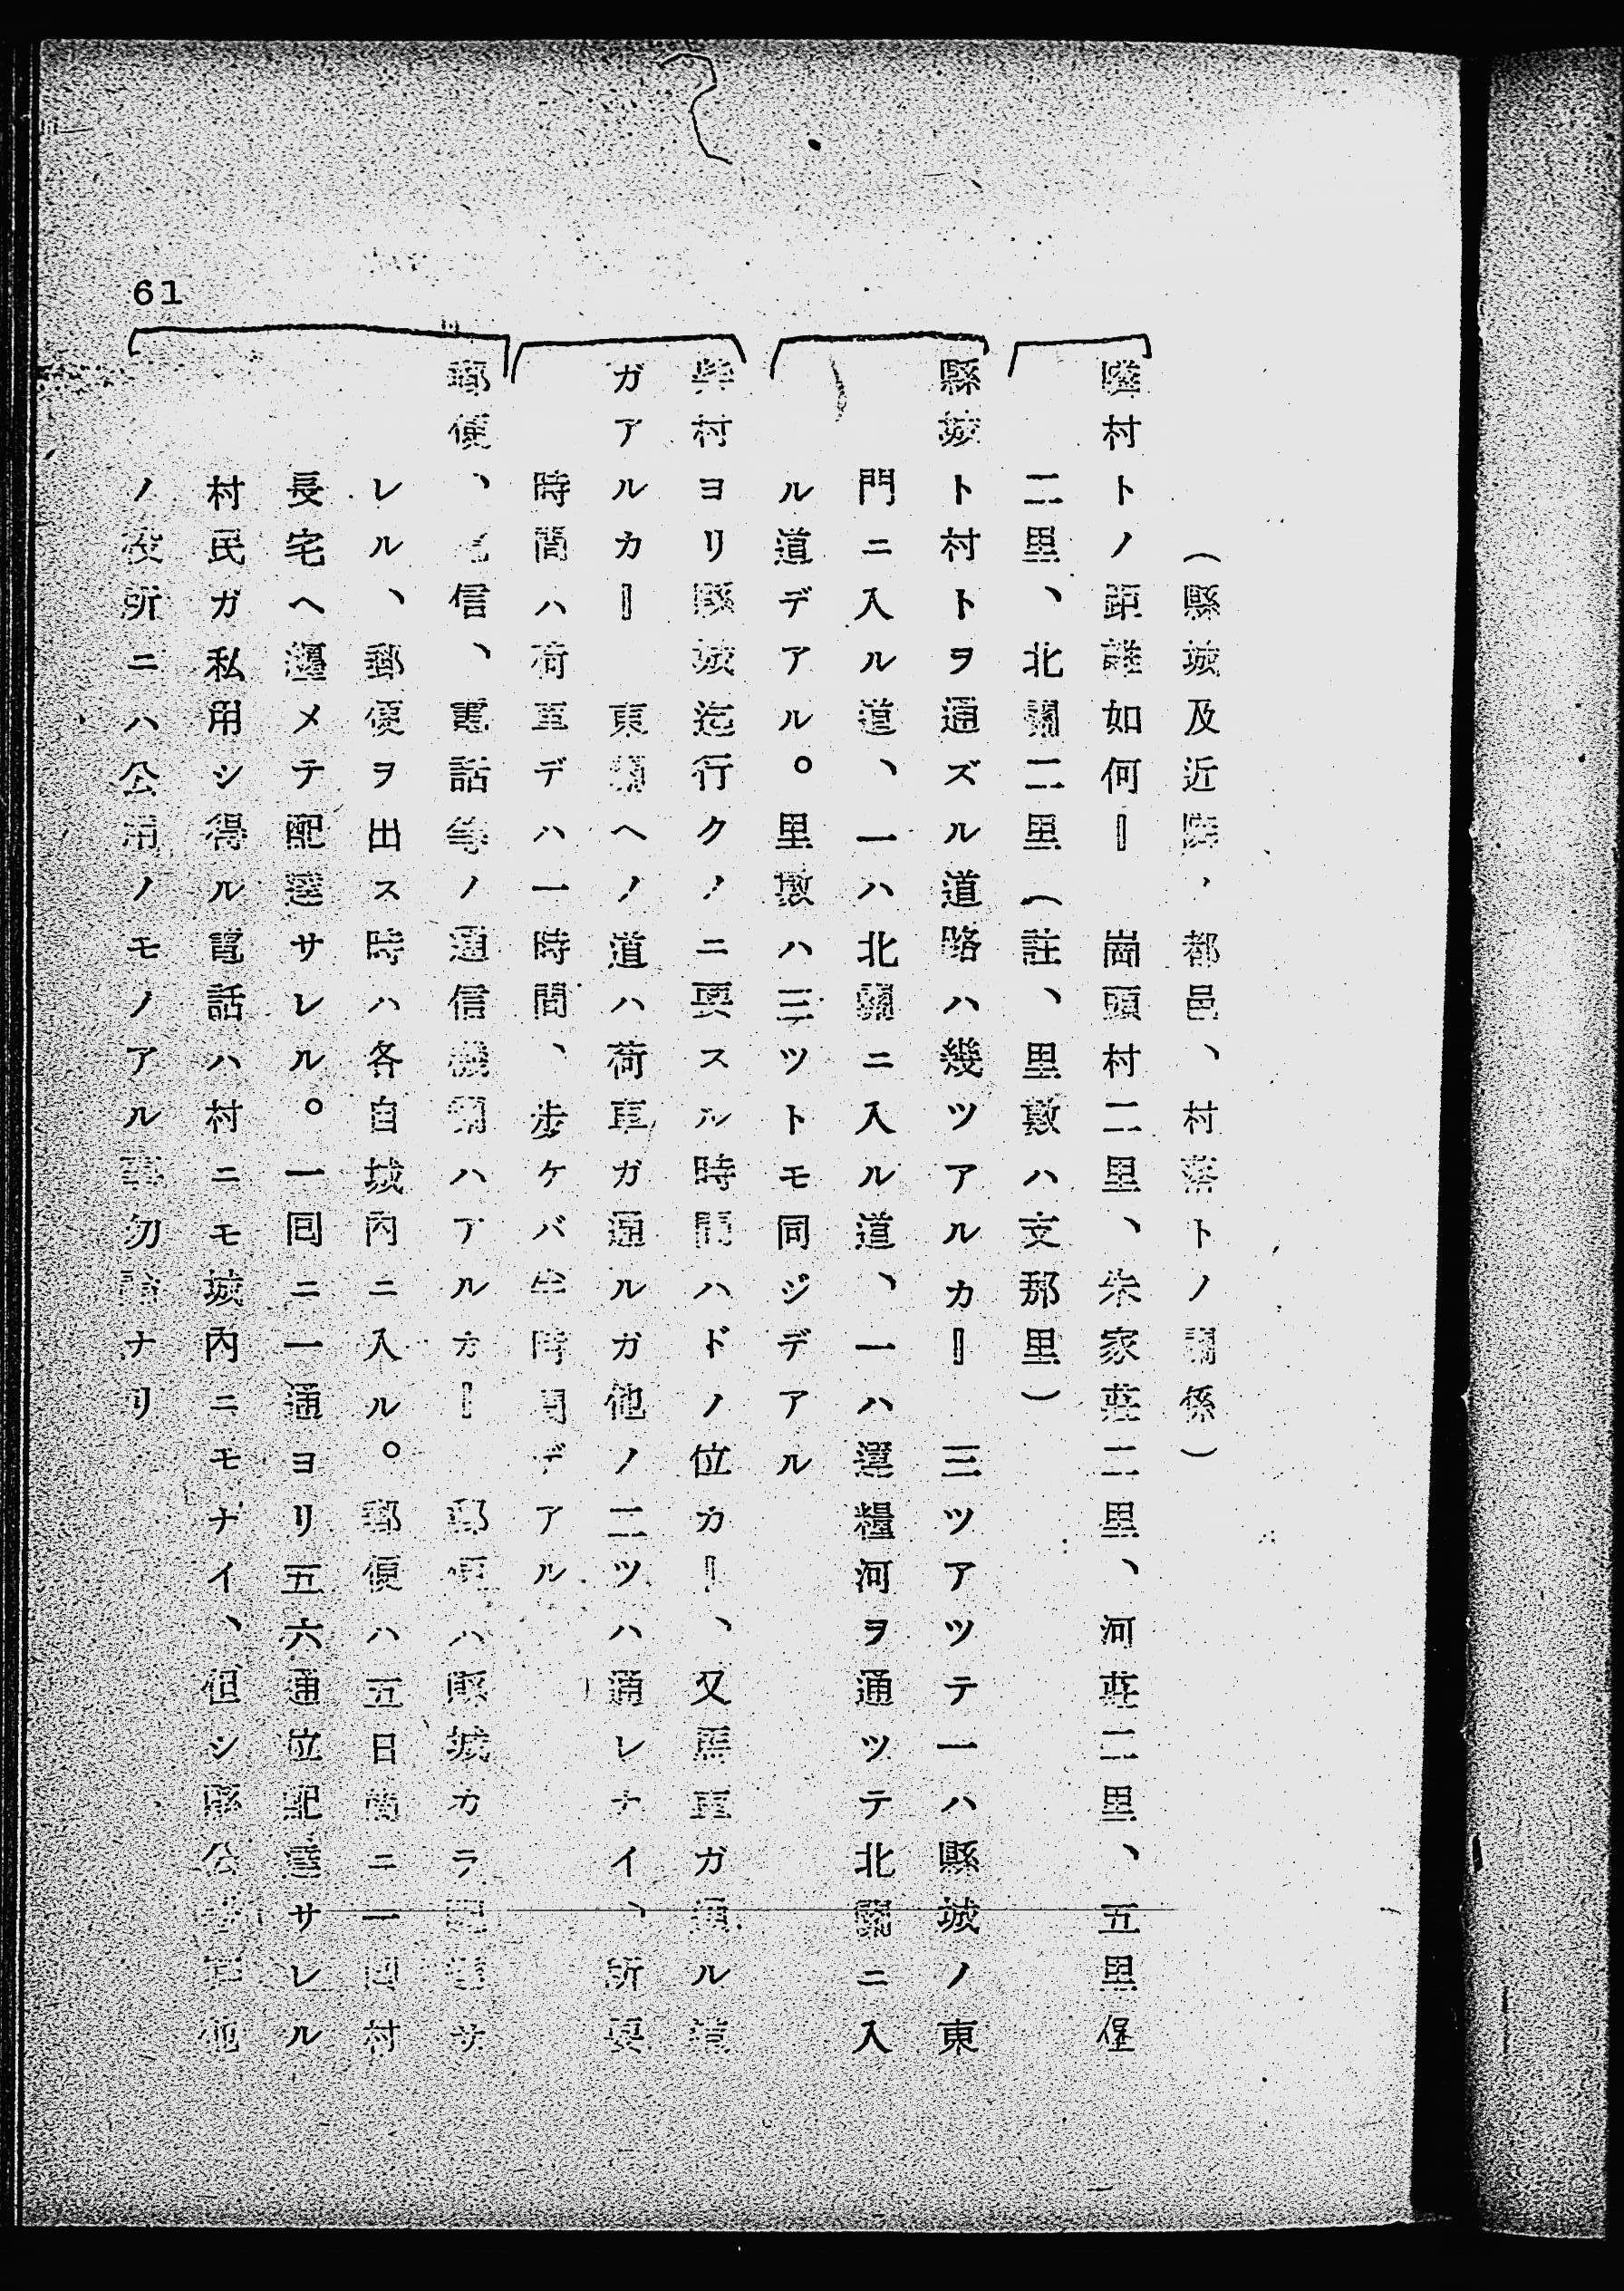 (縣城及近隣ノ都邑、村落トノ關係)
隣村トノ距離如何ー 崗頭村二里、朱家莊二里、河莊二里、五里堡
二里、北關二里(註、里數ハ支那里)
縣城ト村トヲ通ズル道路ハ幾ツアルカー 三ツアツテ一ハ縣城ノ東
門ニ入ル道、一ハ北關ニ入ル道、一ハ運糧河ヲ通ツテ北關ニ入
ル道デアル。里數ハ三ツトモ同ジデアル
村ヨリ縣城迄行クノニ要スル時間ハドノ位カー、又馬車ガ通ル道
ガアルカー 東關ヘノ道ハ荷車ガ通ルガ他ノ二ツハ通レナイ、所要
時間ハ荷車デハ一時間、歩ケバ半時間デアル
郵便、電信、電話等ノ通信機關ハアルカー 郵便ハ縣城カラ配達サ
レル、郵便ヲ出ス時ハ各自城內ニ入ル。郵便ハ五日間ニ一回村
長宅ヘ纏メテ配達サレル。一回ニ一通ヨリ五六通位配達サレル
村民ガ私用シ得ル電話ハ村ニモ城內ニモナイ、但シ縣公署其他
ノ役所ニハ公用ノモノアル事勿論ナリ
61